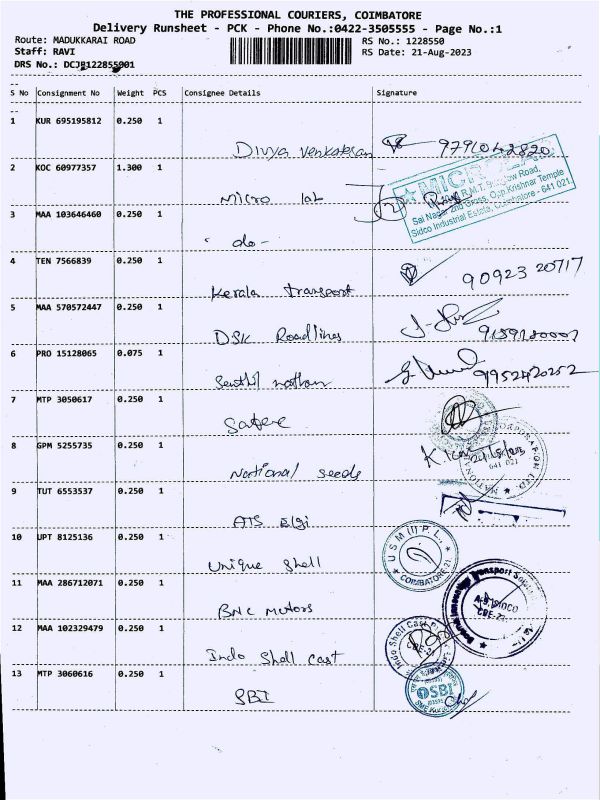 THE PROFESSIONAL COURIERS, COIMBATORE
Delivery Runsheet - PCK - Phone No.:0422-3505555 - Page No.:1
Route: MADUKKARAI ROAD RS No.: 1228550
Staff: RAVI RS Date: 21-Aug-2023
DRS No.:
S No Consignment No Weight PCS Consignee Details Signature
1 KUR 695195812 0.250 1
Divya Venkatesan 9791042820
2 KOC 60977357 1.300 1
Micro lab
MICRO
Sai Nagar 2nd Cross, Opp.Krishnar Temple
Sidco Industrial Estate, Coimbatore - 641 021
3 MAA 103646460 0.250 1
- do -
4 TEN 7566839 0.250 1
Kerala transport 90923 20717
5 MAA 570572447 0.250 1
DSK Roadlines
6 PRO 15128065 0.075 1
Senthil nathan 9952420252
7 MTP 3050617 0.250 1
8 GPM 5255735 0.250 1
National seeds
641 021
9 TUT 6553537 0.250 1
ATS Elgi
10 UPT 8125136 0.250 1
Unique Shell
U S M (I) P L
COIMBATORE 21
11 MAA 286712071 0.250 1
BNC Motors
12 MAA 102329479 0.250 1
Indo Shell Cast
Indo Shell Cast
13 MTP 3060616 0.250 1
SBI
SBI